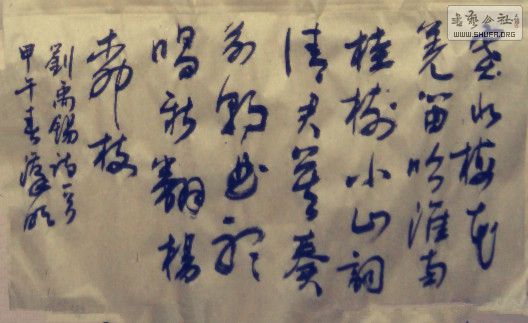 塞北梅花
羌笛吹淮南
桂樹小山詞
請君莫奏
前朝曲聽
唱新翻楊
柳枝
劉禹錫詩一首
甲午春
书艺公社
WWW.SHUFA.ORG